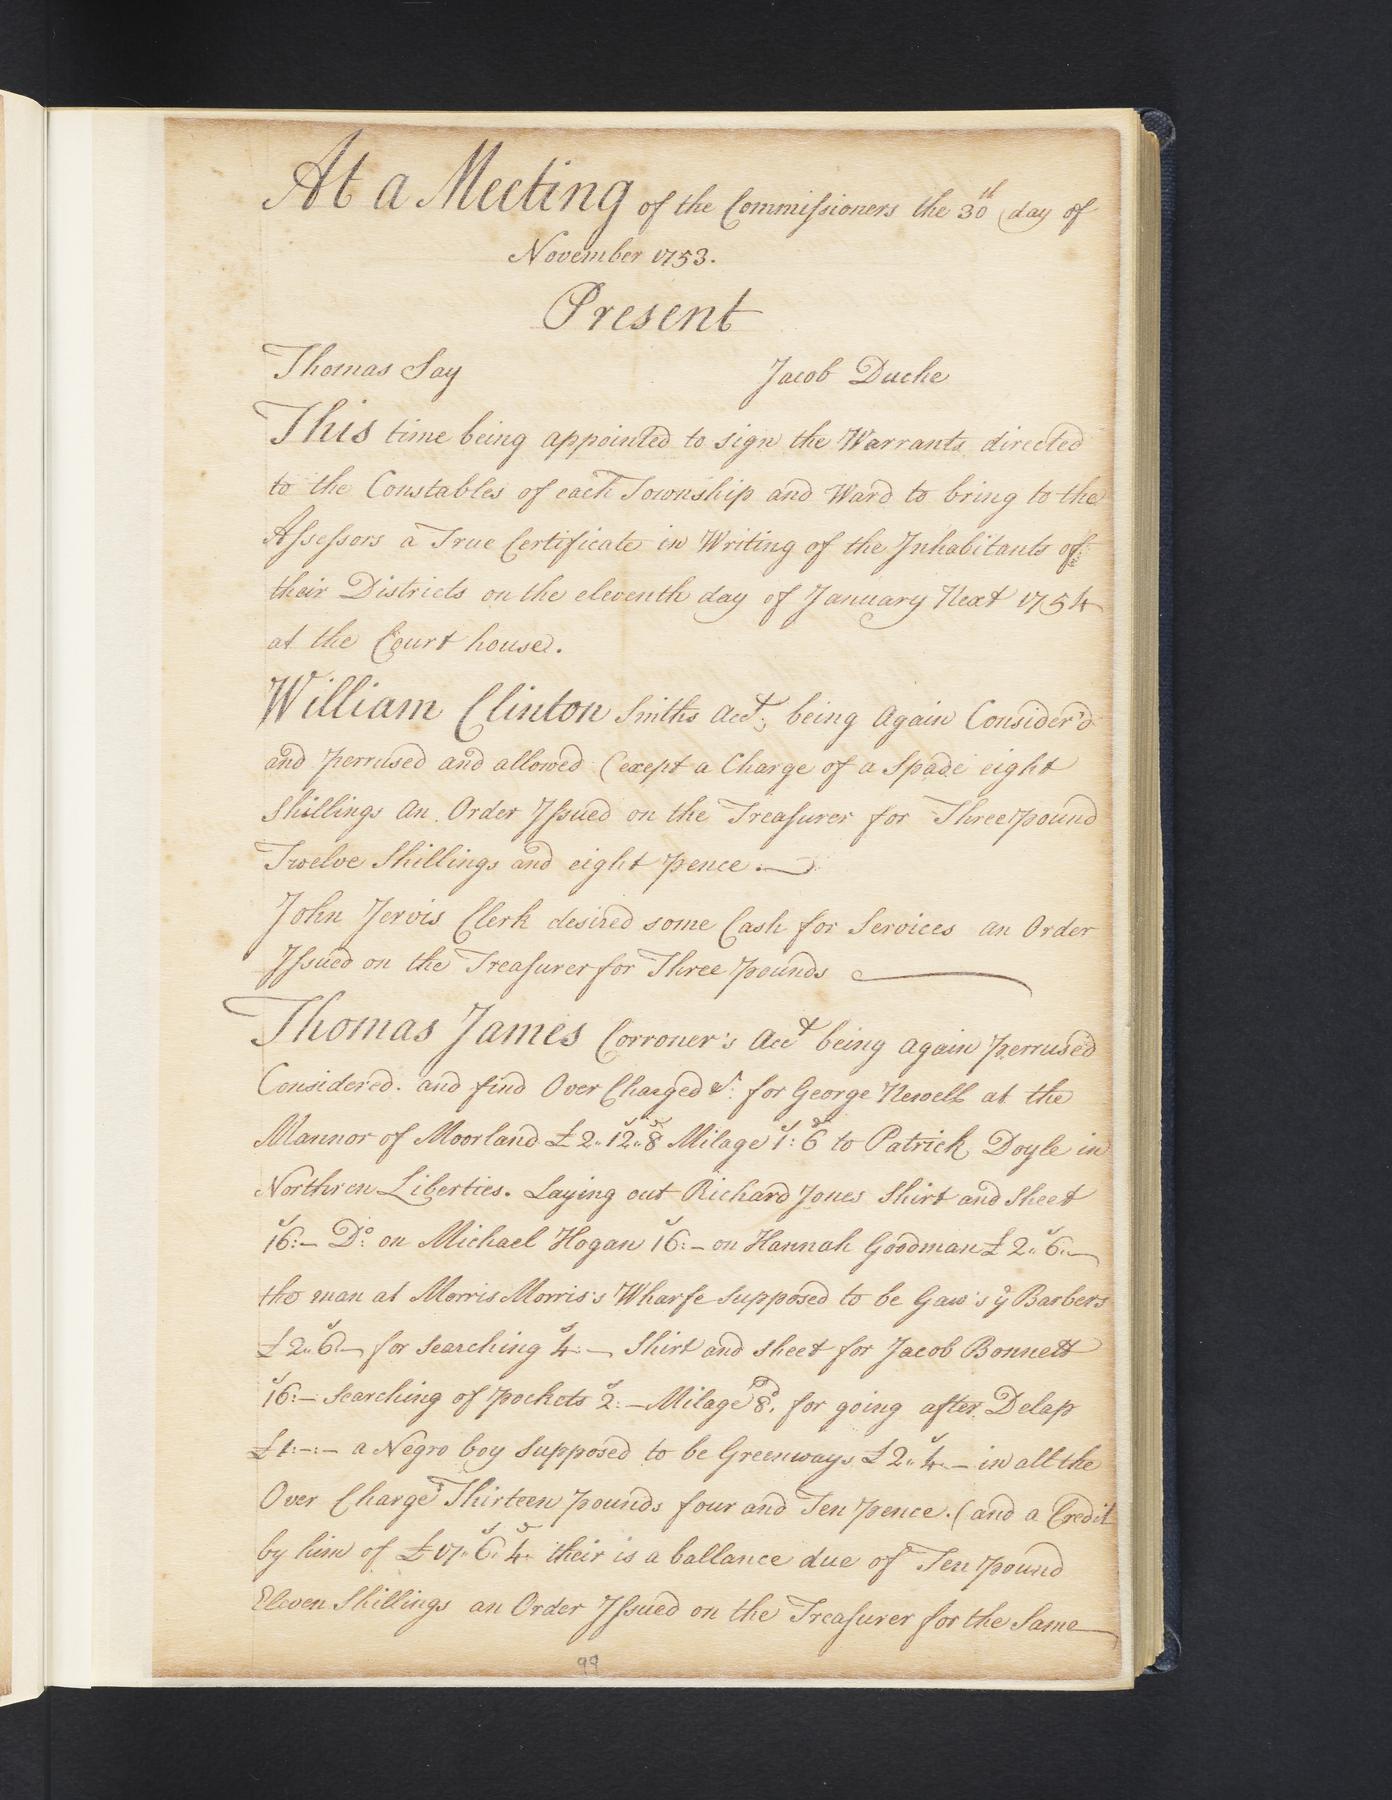 At a Meeting of the Commissioners the 30th day of
November 1753.
Present
Thomas Say Jacob Duche
This time being appointed to sign the Warrants directed
to the Constables of each Township and Ward to bring to the
Assessors a True Certificate in Writing of the Inhabitants of
their Districts on the eleventh day of January Next 1754
at the Court house.
William Clinton Smiths Acct; being Again Consider'd
and perrused and allowed (except a Charge of a Spade eight
Shillings An Order Issued on the Treasurer for Three pound
Twelve Shillings and eight pence.
John Jervis Clerk desired some Cash for Services an Order
Issued on the Treasurer for Three pounds
Thomas James Corroner's Acct being again perrused
Considered. and find Over Charged Vt: for George Newell at the
Mannor of Moorland £2..12s..8d Milage 1s:6d to Patrick Doyle in
Northren Liberties. Laying out Richard Jones Shirt and Sheet
16s:— Do: on Michael Hogan 16s:— on Hannah Goodman £2..6s:—
the man at Morris Morris's Wharfe Supposed to be Gaw's ye Barbers
£2..6s:— for searching 4s:— Shirt and sheet for Jacob Bonnett
16s:— Searching of pockets 2s:— Milage 8d. for going after Delap
£1:—:— a Negro boy Supposed to be Greenways £2..4s:— in all the
Over Charge Thirteen pounds four and Ten pence. (and a Credit
by him of £17..6s..4d their is a ballance due of Ten pound
Eleven Shillings an Order Issued on the Treasurer for the Same
99